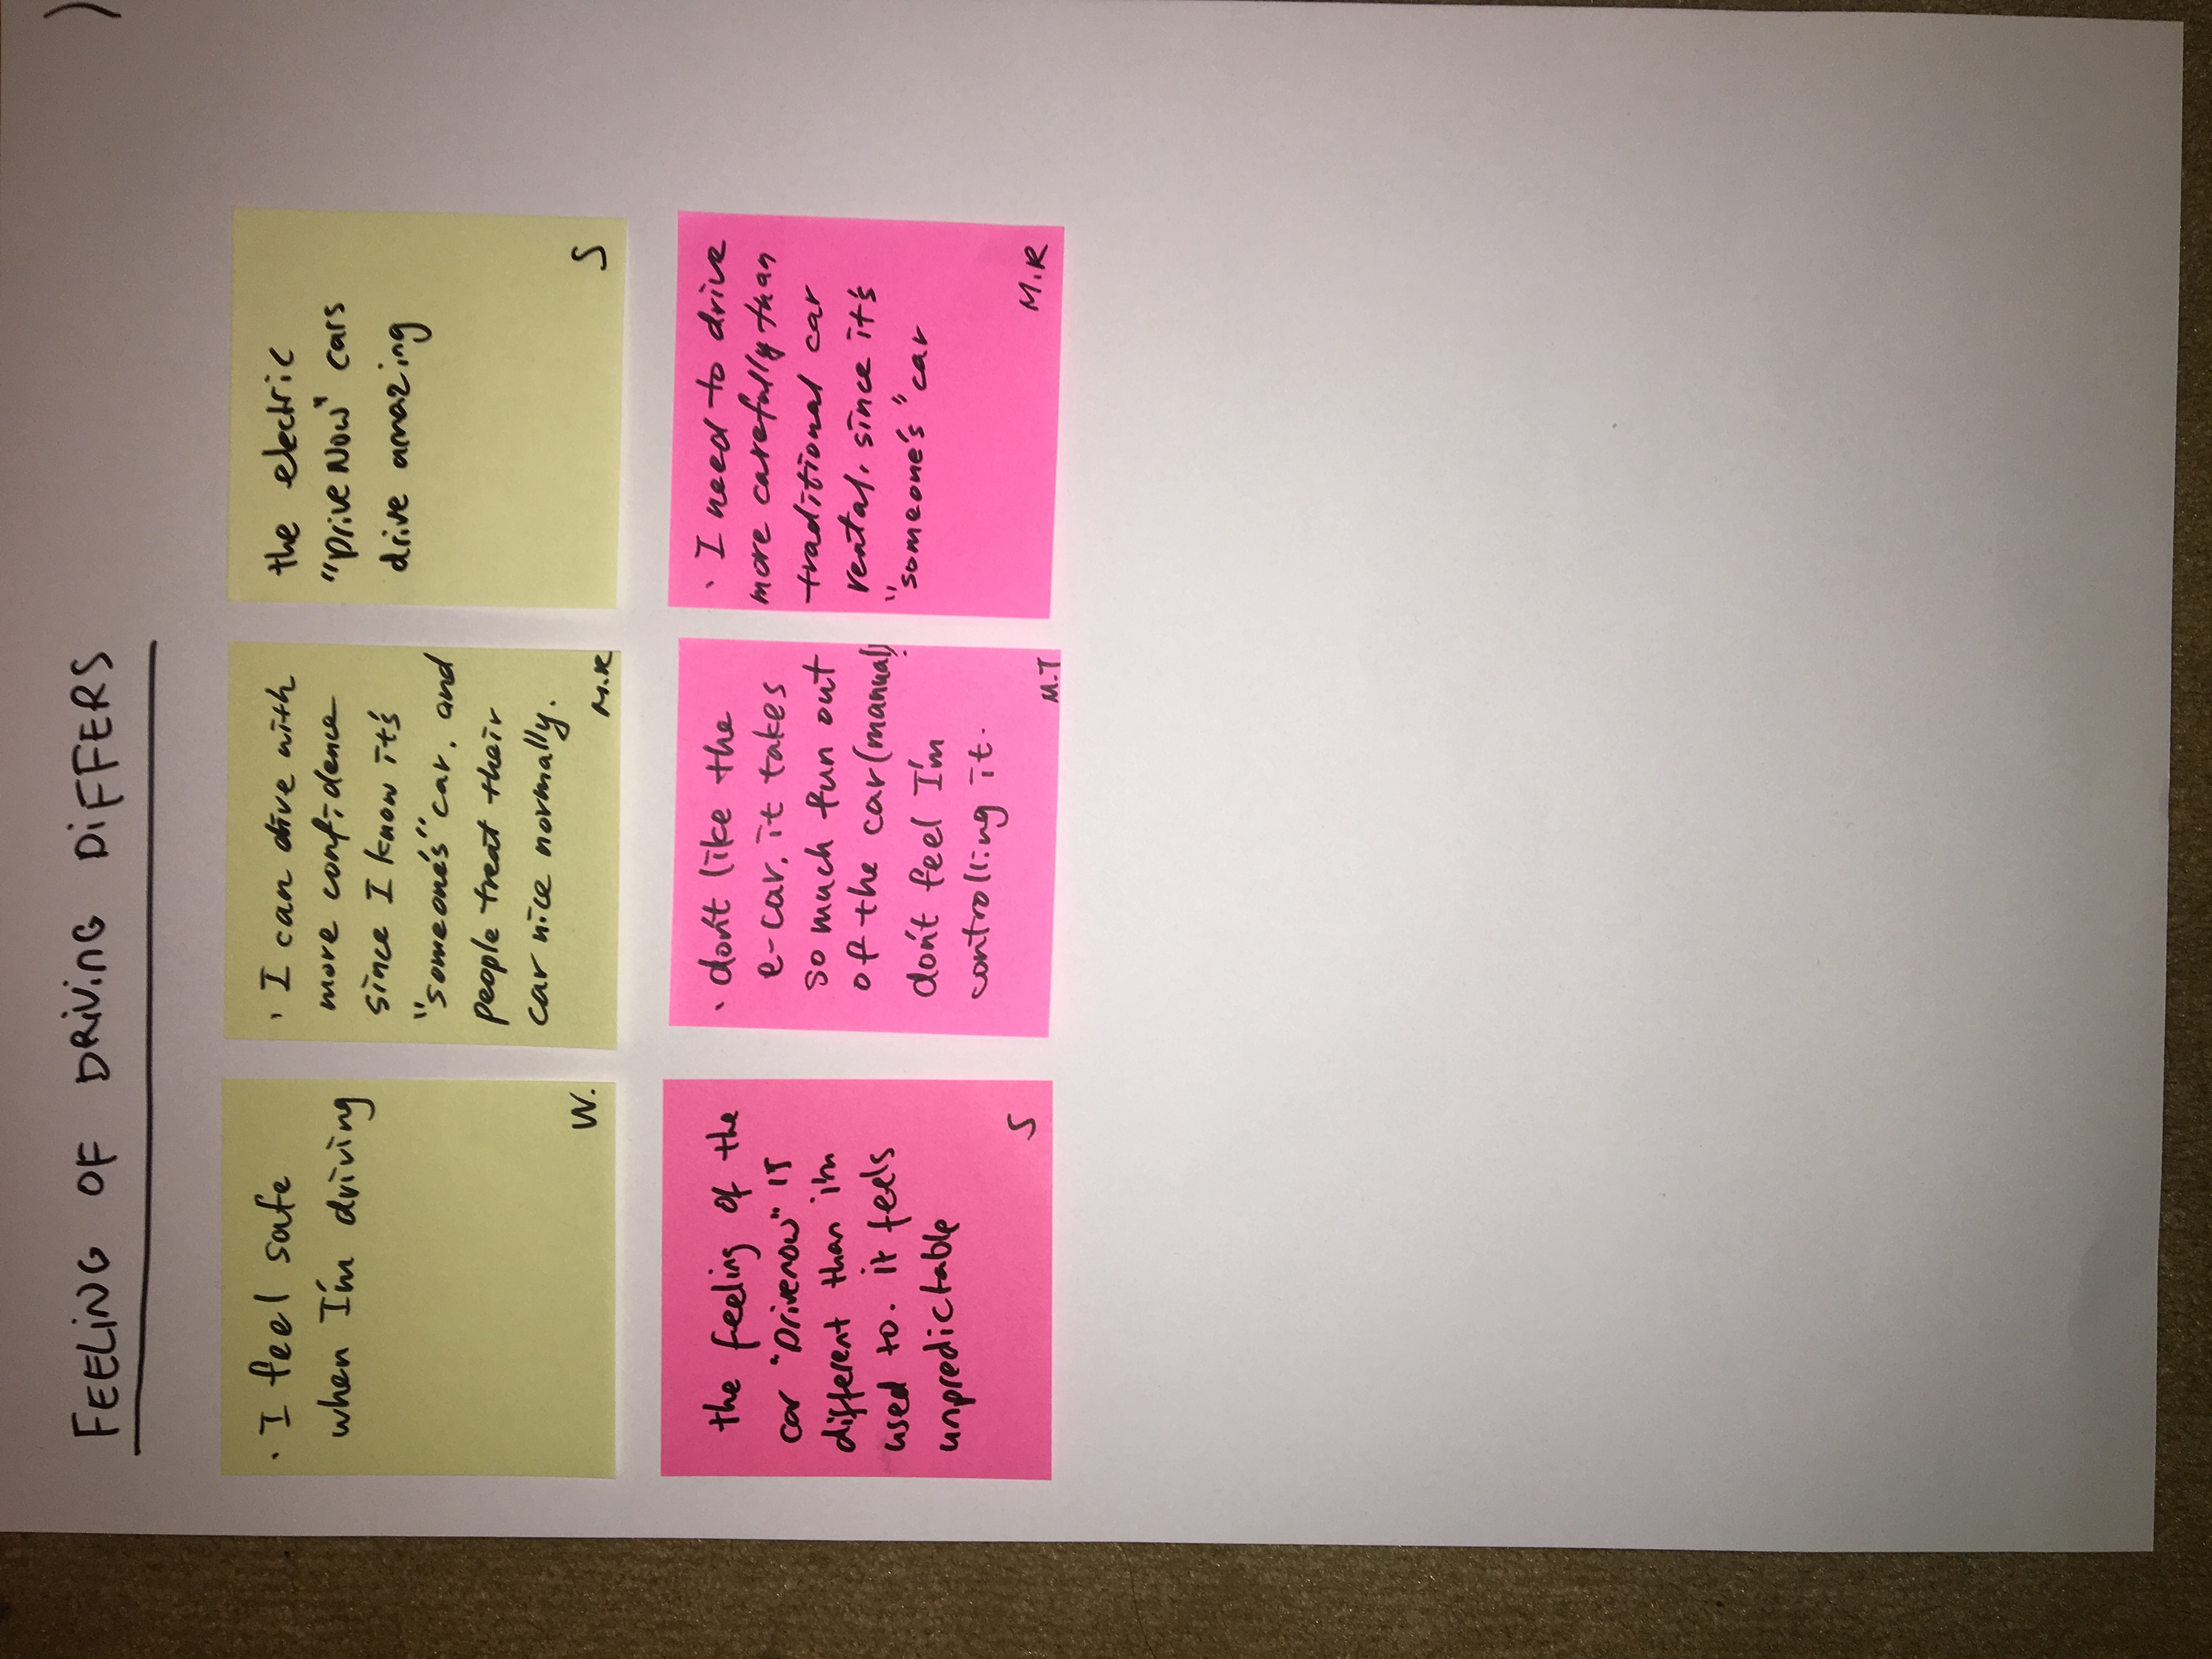 FEELING OF DRIVING DIFFERS
)
· I feel safe
when I'm driving
W.
· I can dive with
more confidence
since I know it's
"someone's" car. and
people treat their
car nice normally.
M.R
the electric
"DriveNow" cars
drive amazing
S
the feeling of the
car "Drivenow" is
different than i'm
used to. it feels
unpredictable
S
· don't like the
e-car. it takes
so much fun out
of the car (manual)
don't feel I'm
controlling it.
M.T
· I need to drive
more carefully than
traditional car
rental. since it's
"someone's" car
M.R